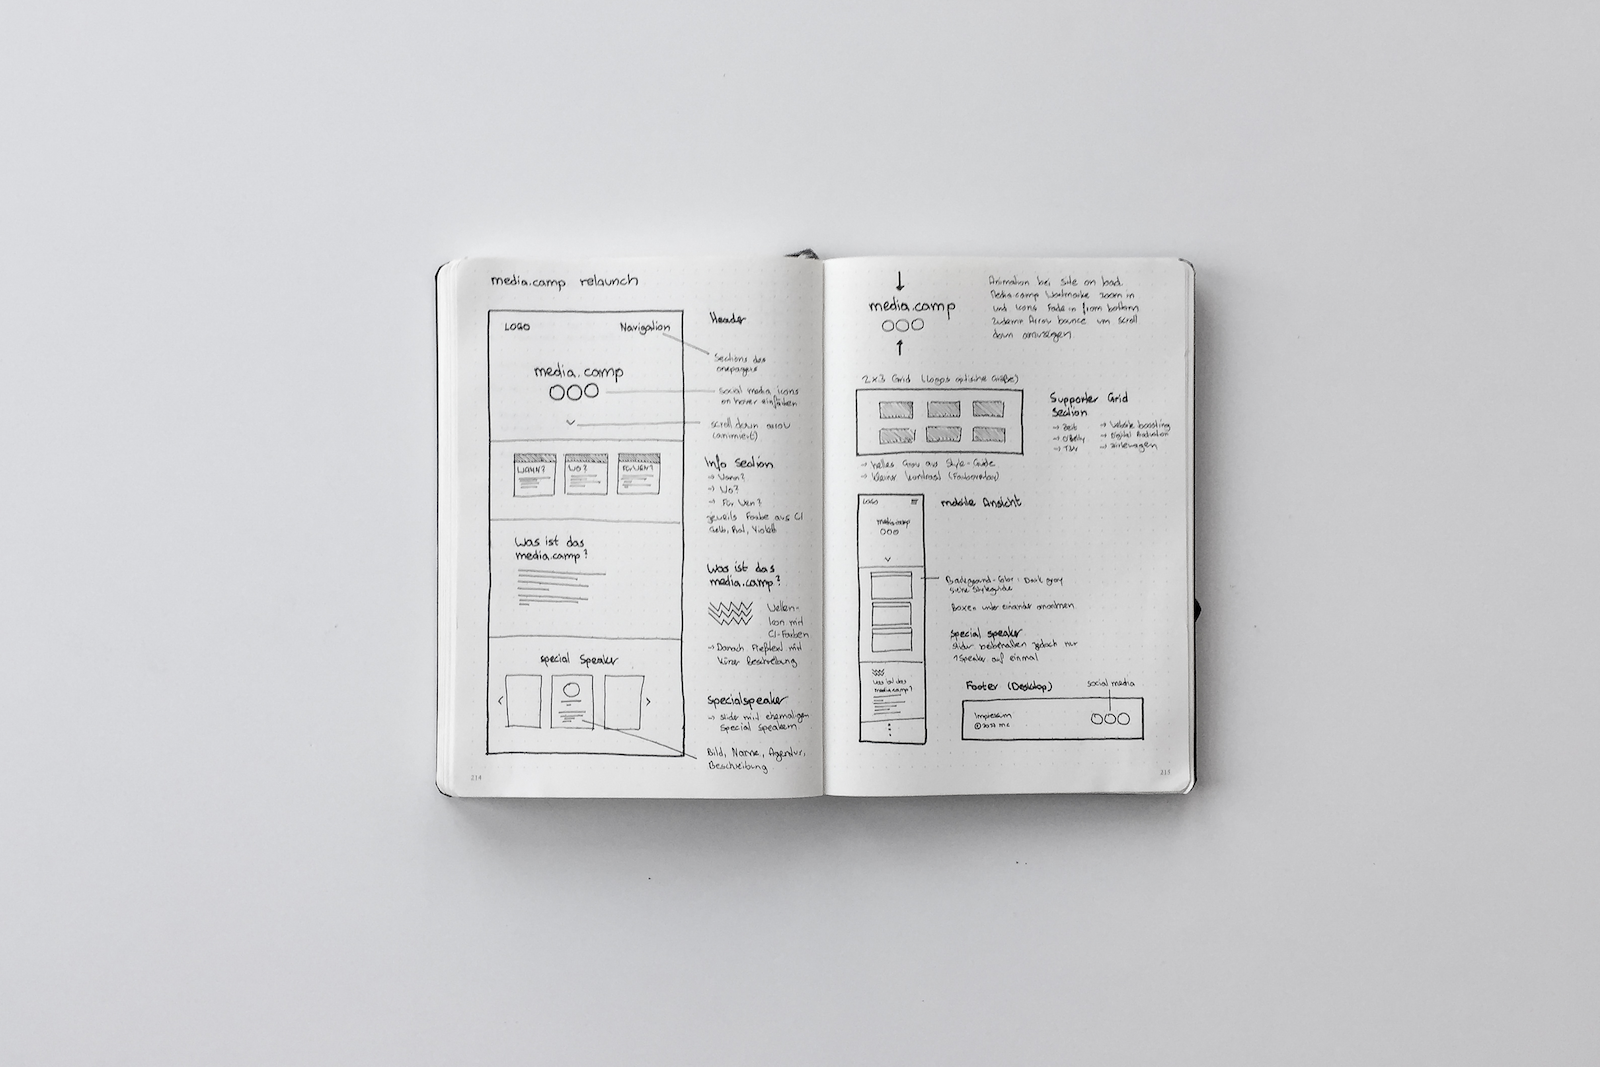 media.camp relaunch
LOGO
Navigation
media.camp
WANN?
WO?
FÜR WEN?
Was ist das
media.camp?
special Speaker
Header
Sections des
onepagers
social media icons
on hover einfärben
scroll down arrow
(animiert)
Info Section
→ Wann?
→ Wo?
→ Für Wen?
jeweils Farbe aus CI
Gelb, Rot, Violett
Was ist das
media.camp?
Wellen-
Icon mit
CI-Farben
→ Danach Fließtext mit
kurzer Beschreibung
Specialspeaker
→ slider mit ehemaligen
Special Speakern
Bild, Name, Agentur,
Beschreibung
214
media.camp
Animation bei Site on load.
Media.camp Wortmarke zoom in
und Icons fade in from bottom
Zudem Arrow bounce um scroll
down anzuzeigen.
2x3 Grid (Logos optische Größe)
Supporter Grid
Section
→ Website boosting
→ Digital
→ helles Grau aus Style-Guide
→ kleiner Kontrast
LOGO
media.camp
mobile Ansicht
Background-Color: Dark gray
siehe Styleguide
Boxen unter einander anordnen
special speaker
slider beibehalten jedoch nur
1 Speaker auf einmal
Was ist das
media.camp?
Footer (Desktop)
social media
Impressum
© 2017 mc
215